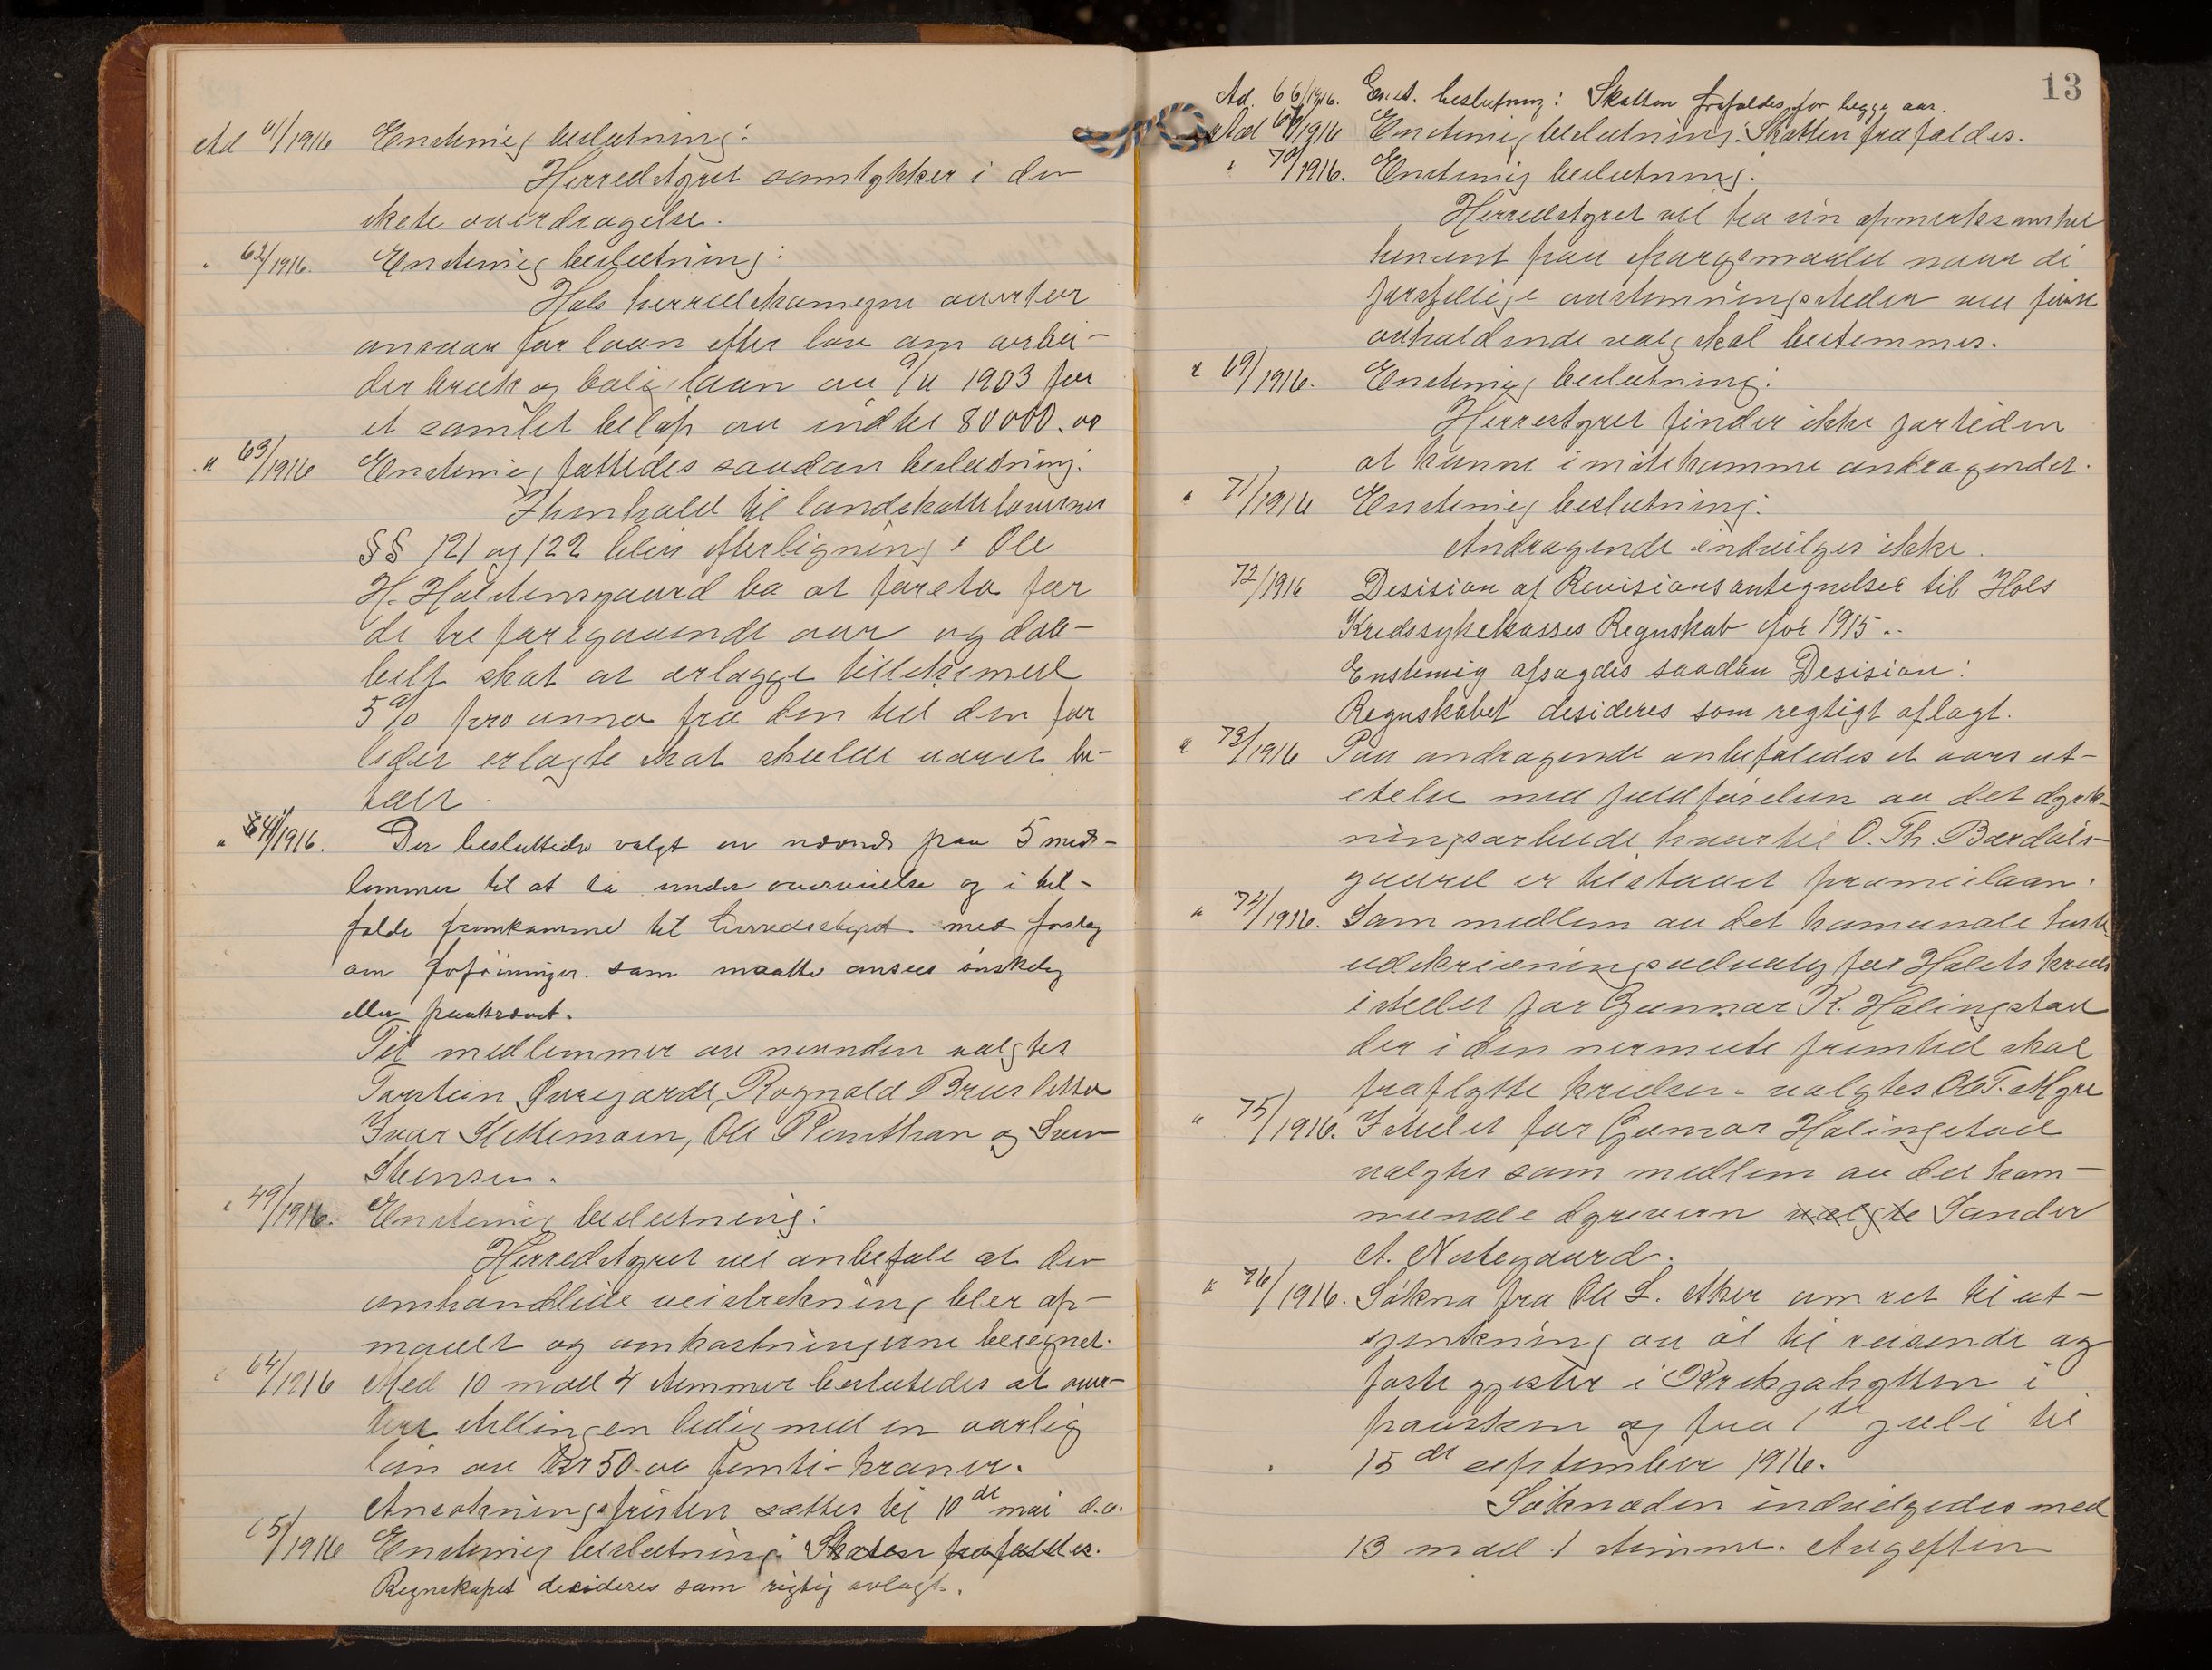 Ad 61/1916 Enstemig beslutning:
Herredstyret samtykker i den
skete overdragelse.
" 62/1916. Enstemig beslutning:
Hols herredskomune overtar
ansvar for laan efter lov om arbei-
derbruk og bolig laan av 9/6 1903 for
et samlet beløp av indtil 80000.00
" 63/1916 Enstemig fattedes saadan beslutning:
Ihenhold til landskattelovernes
§§ 121 og 122 blir efterligning i Ole
H. Holstensgaard bo at foreta for
de tre foregaaende aar og dob-
belt skat at erlægge tillikemed
5 % pro anno fra den tid den for
litet erlagte skat skulde været be-
talt.
" 41/1916. Der besluttedes valgt en nævnd paa 5 med-
lemmer til at ta under overveielse og i til-
fælde fremkomme til herredsstyret med forslag
om forføininger som maatte ansees ønskelig
eller paakrævet.
Til medlemmer av nevnden valgtes
Torstein Øvregarde, Rognald Brusletto
Ivar Slettemoen, Ole Pleinthan og Sven
Stensen.
" 49/1916. Enstemig beslutning:
Herredstyret vil anbefale at den
omhandlede veistrekning bler op-
maalt og omkostningerne beregnet.
" 64/1916 Med 10 mod 4 stemmer besluttedes at aver-
tere stillingen ledig med en aarlig
løn av Kr 50.00 femti-kroner.
Ansøkningsfristen sættes til 10de mai d.a.
65/1916 Enstemig beslutning: Skatten frafaldes.
Regnskapet decideres som rigtig avlagt.
13
Ad. 66/1916. Enst. beslutning: Skatten frafaldes for begge aar.
Ad 67/1916 Enstemig beslutning: Skatten frafaldes.
" 70/1916. Enstemig beslutning:
Herredstyret vil ha sin opmerksomhet
henvent paa spørgsmaalet naar de
forskjellige avstemningssteder ved første
avholdende valg skal bestemmes.
" 69/1916. Enstemig beslutning:
Herrestyret finder ikke fortiden
at kunne imøtekomme andragendet.
" 71/1916 Enstemig beslutning:
Andragende indvilges ikke.
72/1916 Desision af Revisionsantegnelser til Hols
Kredssykekasses Regnskab for 1915..
Enstemig afsagdes saadan Desision:
Regnskabet desideres som regtigt aflagt.
" 73/1916 Paa andragende anbefaledes et aars ut-
settelse med fuldførelsen av det dyrk-
ningsarbeide hvortil O. Th. Bærdøls-
gaard er tilstaaet præmielaan.
" 74/1916. Som medlem av det komunale heste
udskrivningsudvalg for Holets kreds
istedet for Gunnar K. Holingstad
der i den nermeste fremtid skal
fraflytte kredsen valgtes Ole T. Myre
" 75/1916. Istedet for Gunnar Holingstad
valgtes som medlem av det kom-
munale dyrevern valgte Sander
A. Nestegaard.
" 76/1916. Søkna fra Ole L. Aker om ret til ut-
sjenkning av øl til reisende og
faste gjester i Krækjahytten i
paasken og fra 1ste juli til
15de september 1916.
Søknaden indvilgedes med
13 mod 1 stemme. Avgeften